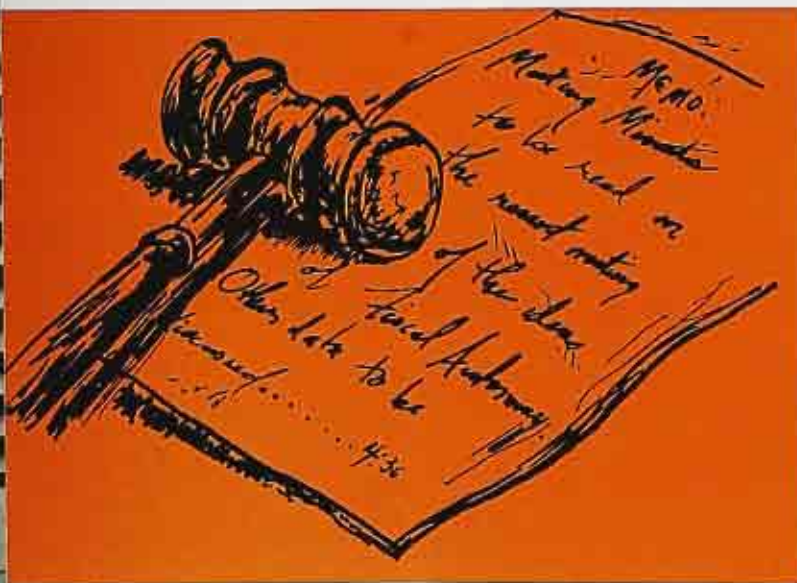 MEMO:
Meeting Minutes
to be read on
the recent meeting
of the
of fiscal Autonomy
Other data to be
discussed........
4:30